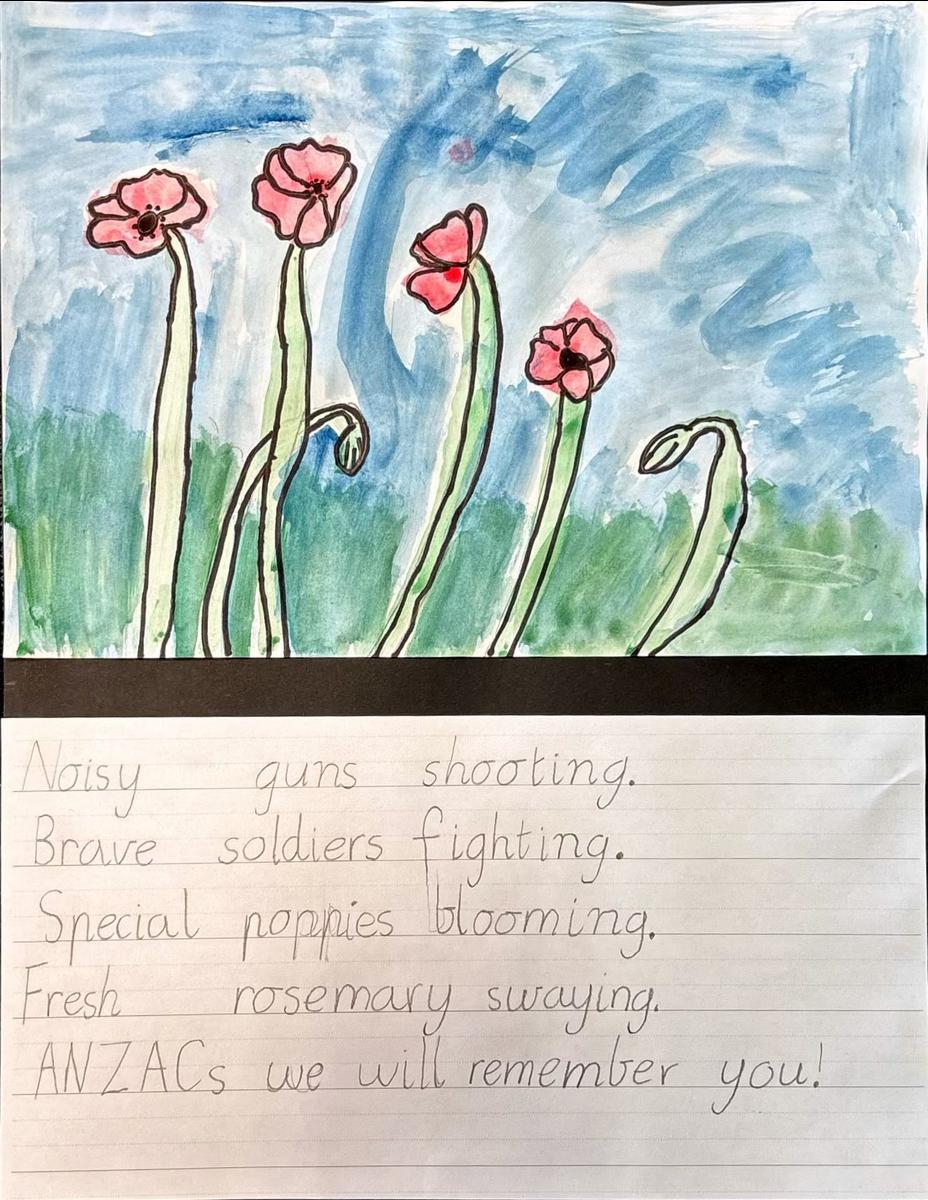 Noisy guns shooting.
Brave soldiers fighting.
Special poppies blooming.
Fresh rosemary swaying.
ANZACs we will remember you!